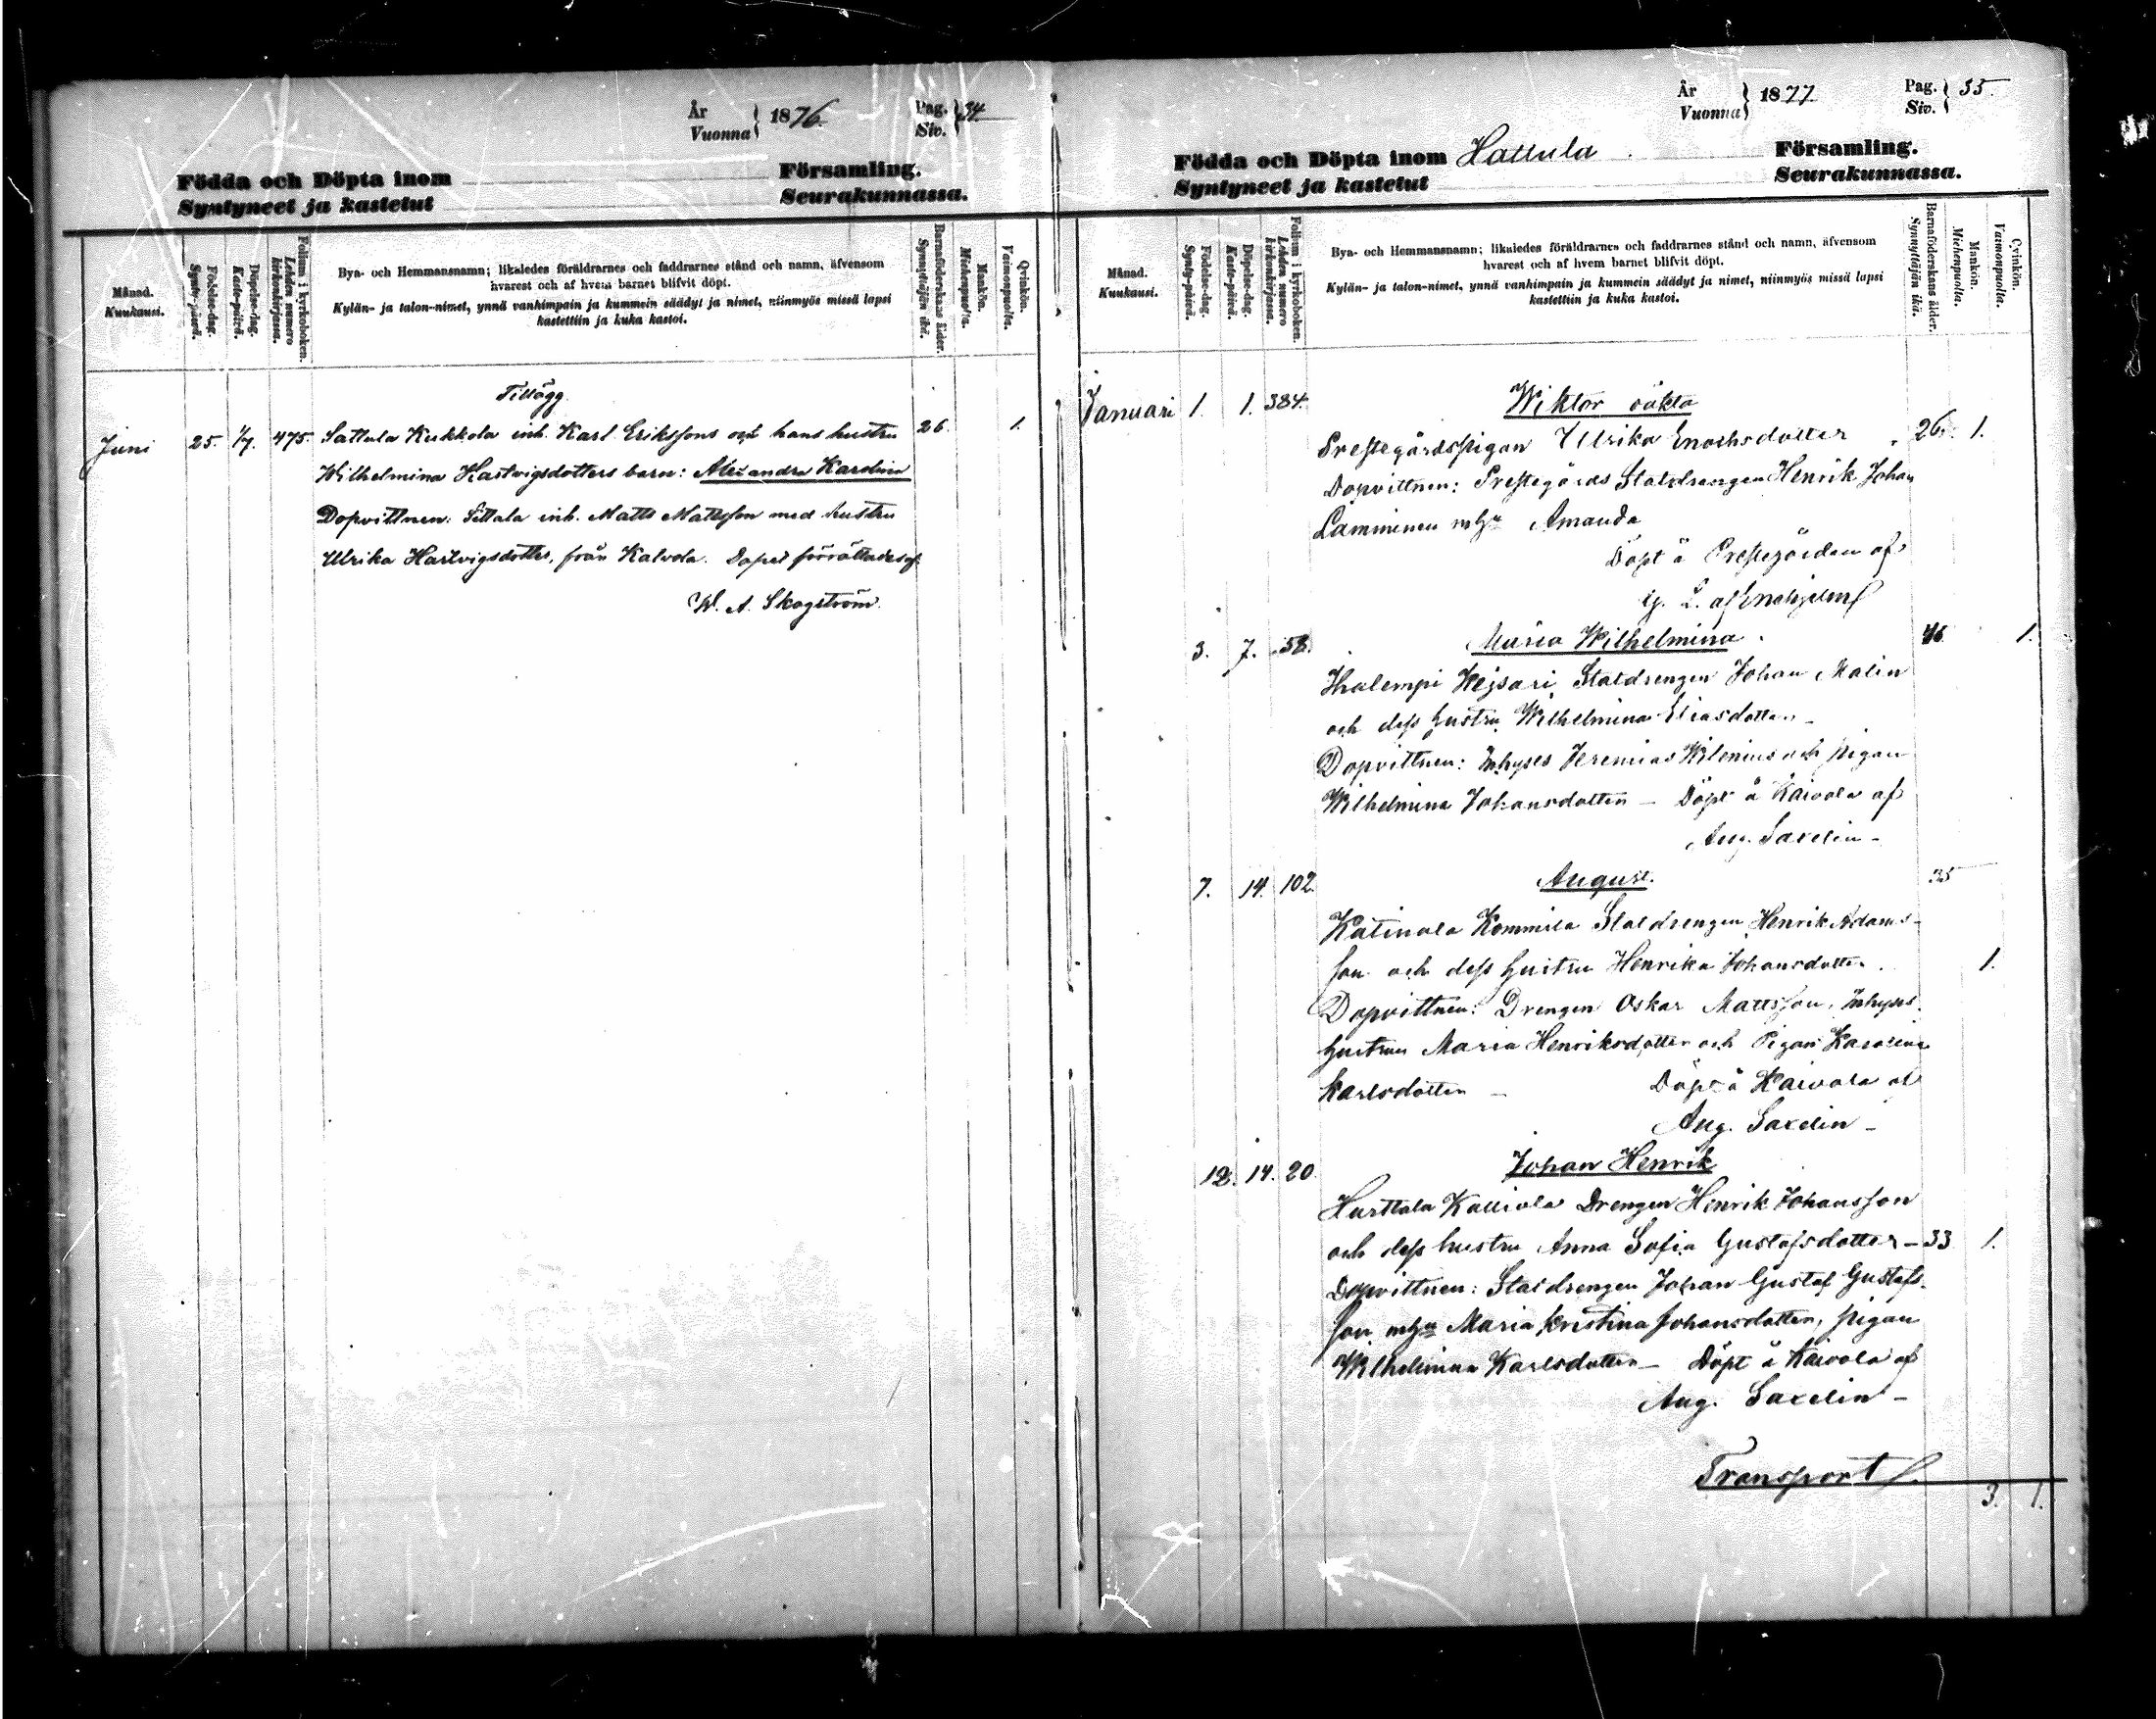 År
Vuonna } 1876.
Pag.
Siv. } 34
Födda och Döpta inom Församling.
Syntyneet ja kastetut Seurakunnassa.
Månad.
Kuukausi.
Födelse-dag.
Synty-päivä.
Döpelse-dag.
Kaste-päivä.
Folium i kyrkoboken.
Lehden numero kirkonkirjassa.
Bya- och Hemmansnamn; likaledes föräldrarnes och faddrarnes stånd och namn, äfvensom
hvarest och af hvem barnet blifvit döpt.
Kylän- ja talon-nimet, ynnä vanhimpain ja kummein säädyt ja nimet, niinmyös missä lapsi
kastettiin ja kuka kastoi.
Barnaföderskans ålder.
Synnyttäjän ikä.
Mankön.
Miehenpuolta.
Qvinkön.
Vaimonpuolta.
Tillägg
Juni 25. 1/7. 475. Sattula Kukkola inh. Karl Erikssons och hans hustru 26. 1.
Wilhelmina Hartvigsdotters barn: Alexandra Karolina
Dopvittnen: Sittala inh. Matts Mattsson med hustru
Ulrika Hartvigsdotter, från Kalvola. Dopet förrättades af
W. A. Skogström.
År
Vuonna } 1877
Pag.
Siv. } 35.
Födda och Döpta inom Hattula Församling.
Syntyneet ja kastetut Seurakunnassa.
Månad.
Kuukausi.
Födelse-dag.
Synty-päivä.
Döpelse-dag.
Kaste-päivä.
Folium i kyrkoboken.
Lehden numero kirkonkirjassa.
Bya- och Hemmansnamn; likaledes föräldrarnes och faddrarnes stånd och namn, äfvensom
hvarest och af hvem barnet blifvit döpt.
Kylän- ja talon-nimet, ynnä vanhimpain ja kummein säädyt ja nimet, niinmyös missä lapsi
kastettiin ja kuka kastoi.
Barnaföderskans ålder.
Synnyttäjän ikä.
Mankön.
Miehenpuolta.
Qvinkön.
Vaimonpuolta.
Januari 1. 1. 384. Wiktor oäkta
Prestegårdspigan Ulrika Enochsdotter 26. 1.
Dopvittnen: Prestegårds Staldrengen Henrik Johan
Lamminen mhu Amanda
Döpt å Prestegården af
G. L. af Enehjelm
3. 7. 58. Maria Wilhelmina 46 1.
Ihalempi Hejsari Statdrengen Johan Malin
och dess hustru Wilhelmina Eliasdotter
Dopvittnen: Inhyses Jeremias Wilenius och pigan
Wilhelmina Johansdotter – Döpt å Kaivola af
Aug. Saxelin –
7. 14. 102. August. 35
Katinala Kommila Statdrengen Henrik Adams-
son och dess hustru Henrika Johansdotter. 1.
Dopvittnen: Drengen Oskar Mattsson, Inhyses
hustrun Maria Henriksdotter och Pigan Karolina
Karlsdotter – Döpt å Kaivola af
Aug. Saxelin –
12. 14. 20. Johan Henrik
Hurttala Kalliola Drengen Henrik Johansson
och dess hustru Anna Sofia Gustafsdotter – 33 1.
Dopvittnen: Staldrengen Johan Gustaf Gustafs-
son mhu Maria Kristina Johansdotter, pigan
Wilhelmina Karlsdotter – Döpt å Kaivola af
Aug. Saxelin –
Transport
3. 1.